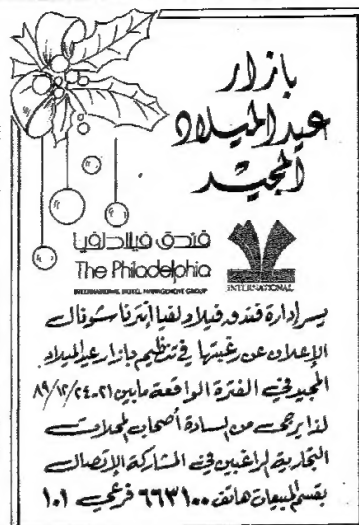 بازار
عيد الميلاد
المجيد
فندق فيلادلفيا
The Philadelphia
INTERNATIONAL HOTEL MANAGEMENT GROUP
INTERNATIONAL
يسر إدارة فندق فيلادلفيا انترناشونال
الإعلان عن رغبتها في تنظيم بازار عيد الميلاد
المجيد في الفترة الواقعة مابين ٢١-٢٤/١٢/٨٩
لذا يرجى من السادة أصحاب المحلات
التجارية الراغبين في المشاركة الإتصال
بقسم المبيعات هاتف ٦٦٣١٠٠ فرعي ١٠١